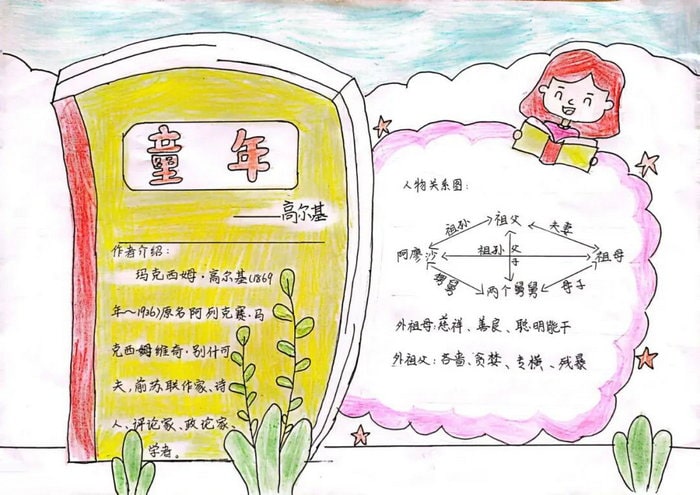 童年
——高尔基
作者介绍:
玛克西姆·高尔基(1869
年~1936)原名阿列克赛·马
克西姆维奇·别什可
夫,前苏联作家、诗
人、评论家、政论家、
学者。
人物关系图:
祖孙 祖父 夫妻
阿廖沙 祖孙 父子 祖母
舅舅 两个舅舅 母子
外祖母:慈祥、善良、聪明能干
外祖父:吝啬、贪婪、专横、残暴